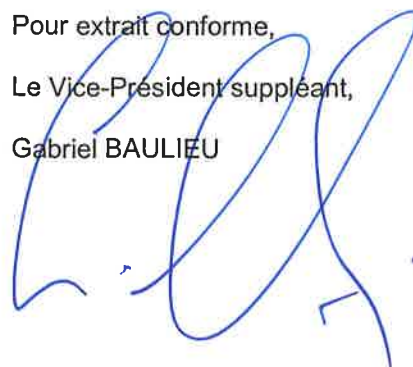 Pour extrait conforme,
Le Vice-Président suppléant,
Gabriel BAULIEU